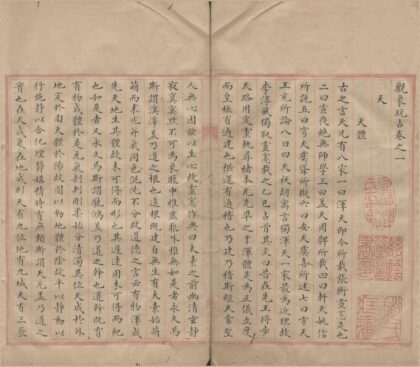 觀象玩占卷之一
天
天體
古之言天凡有八家一曰渾天即今所載張衡靈憲是也
二曰宣夜絶無師學三曰蓋天周髀所載四曰軒天姚信
所說五曰穹天虞聳所擬六曰安天虞喜所述七曰方天
王充所論八曰四天祆胡寓言獨渾天一家最為近理故
李淳風獨取靈憲載之乙巳占首其文曰昔在先王將步
天路用定靈軌尋緒本元先準之于渾體是為正儀立度
而皇極有逌建也樞運有逌稽也乃建乃稽斯經天常聖
人無心因茲以生心故靈憲作興曰太素之前幽清玄靜
寂寞冥默不可為象厥中惟虛厥外惟無如是者永久焉
斯謂溟涬蓋乃道之根也道根既建自無生有太素始萌
萌而未兆并氣同色混沌不分故道德之言云有物渾成
先天地生其氣體固未可得而形也其遲速固未可得而紀
也如是者又永久焉斯謂龐鴻蓋乃道之幹也道幹既育
有物成體於是元氣剖判剛柔始分清濁異位天成於外
地定於内天體於陽故圓以動地體於陰故平以靜動以
行施靜以合化堙鬱構精時育庶類斯謂天元蓋乃道之
實也在天成象在地成形天有九位地有九域天有三辰